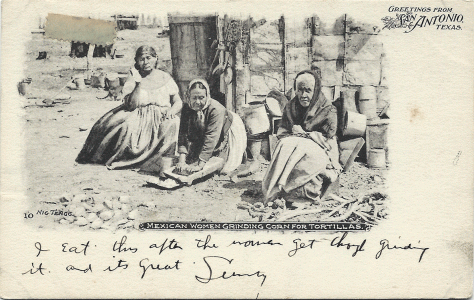 GREETINGS FROM
SAN ANTONIO,
TEXAS.
10
MEXICAN WOMEN GRINDING CORN FOR TORTILLAS.
I Eat this after the women get through grinding
it. and its great